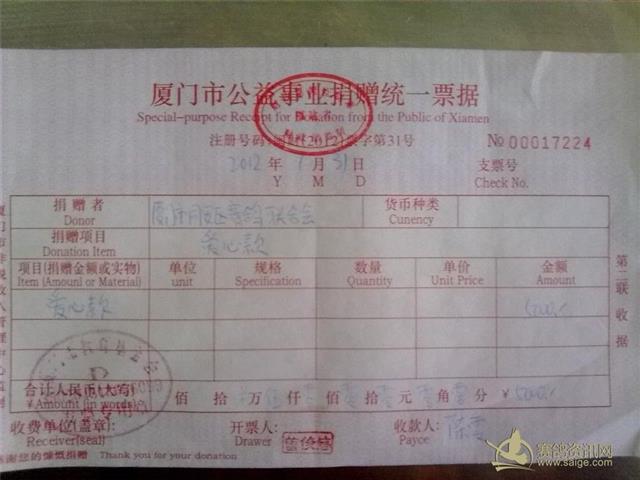 厦门市公益事业捐赠统一票据
Special-purpose Receipt for Donation from the Public of Xiamen
注册号码: (2012) 票字第31号 №00017224
2012年 月31日 支票号
Y M D Check No.
捐赠者 货币种类
Donor 赛鸽联合会 Cunency
捐赠项目 爱心款
Donation Item
项目(捐赠金额或实物) 单位 规格 数量 单价 金额
Item (Amouni or Material) unit Specification Quantity Unit Price Amount
爱心款 5000.-
合计人民币(大写) 佰 拾 万 伍 仟 佰 拾 元 角 分 ¥5000.-
¥Amount (in words)
收费单位(盖章): 开票人: 收款人: 陈
Receiver(seal) Drawer Payce
感谢您的慷慨捐赠 Thank you for your donation
第二联 收据
赛鸽资讯网
www.saige.com